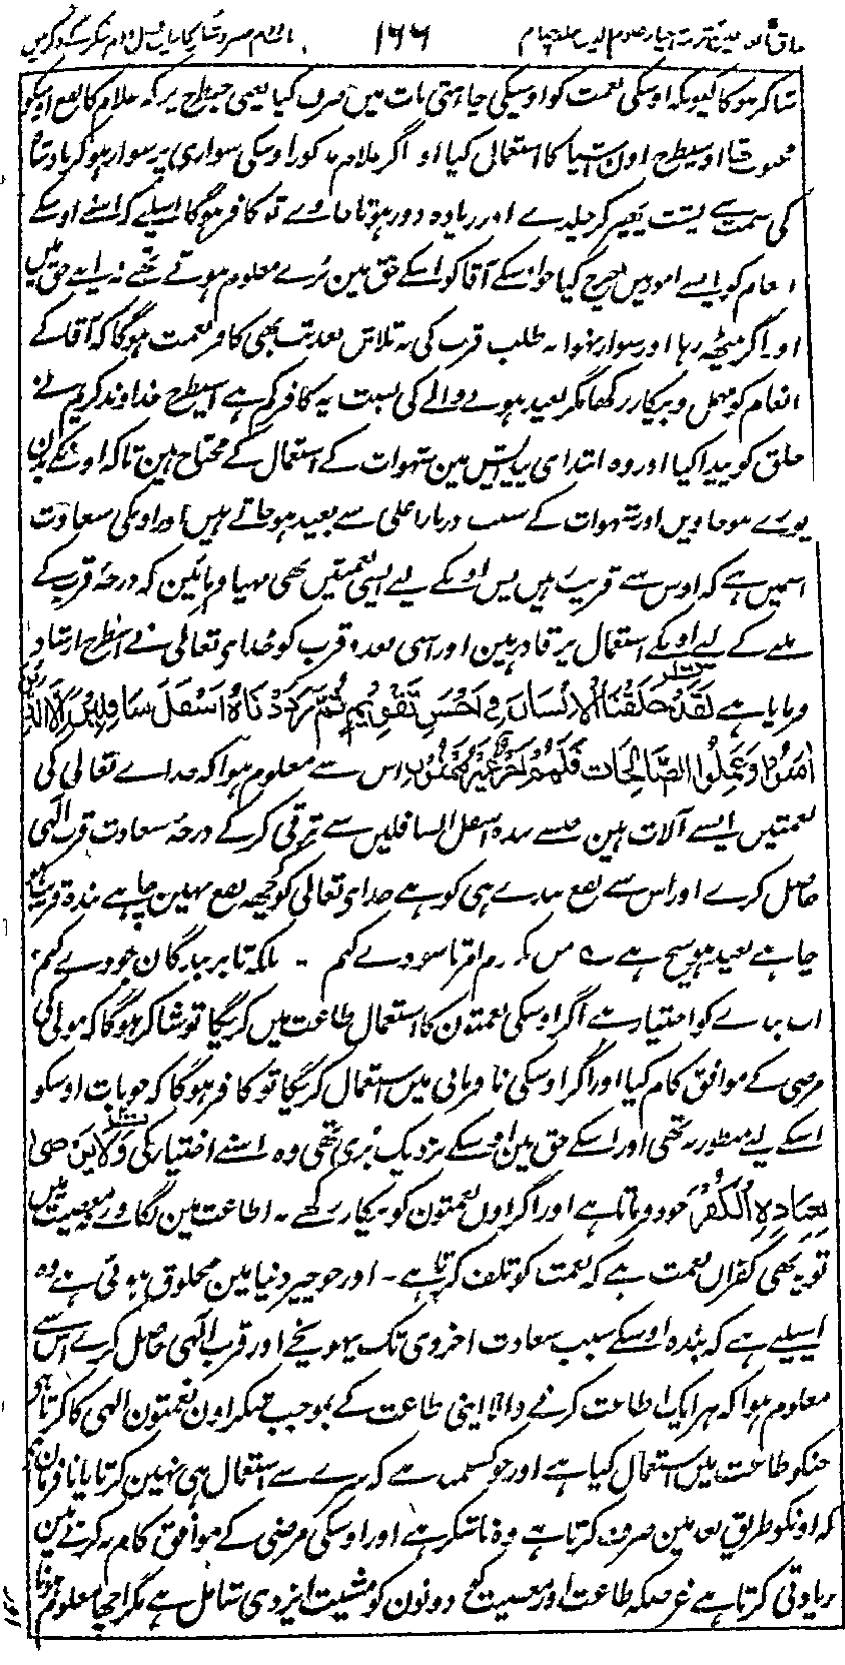 ۱۶۶
شاکر ہوگا کیونکہ اوسکی نعمت کو اوسکی چاہتی بات میں صرف کیا یعنی جسطرح پر کہ غلام کا نفع اوسکو
محبوب تھا اوسیطرح اون اشیا کا استعمال کیا او اگر غلام مذکور اوسکی سواری پر سوار ہوکر بادشاہ
کی سمت سے پشت پھیر کر چلدے اور زیادہ دور ہوتا جاوے تو کافر ہوگا اسلیے کہ اسنے اوسکے
انعام کو ایسے امور میں خرچ کیا جو اسکے آقا کو اسکے حق مین بُرے معلوم ہوتے تھے نہ اپنے حق میں
اور اگر بیٹھ رہا اور سوار نہوا نہ طلب قرب کی نہ تلاش بعد تب بھی کافر نعمت ہوگا کہ آقا کے
انعام کو مہمل و بیکار رکھا مگر بعید ہونے والے کی نسبت یہ کافر کم ہے اسیطرح خداوند کریم نے
خلق کو پیدا کیا اور وہ ابتدای پیدایش مین شہوات کے استعمال کے محتاج ہین تاکہ اونکے بدن
پورے ہوجاویں اور شہوات کے سبب دربار اعلی سے بعید ہوجاتے ہیں اور اونکی سعادت
اسمیں ہے کہ اوس سے قریب ہیں پس اونکے لیے ایسی نعمتیں بھی مہیا فرمائین کہ درجۂ قرب کے
ملنے کے لیے اونکے استعمال پر قادر ہین اور اسی بعد و قرب کو خدای تعالی نے اسطرح ارشاد
فرمایا ہے لَقَدْ خَلَقْنَا الْاِنْسَانَ فِي اَحْسَنِ تَقْوِيْمٍ ثُمَّ رَدَدْنَاهُ اَسْفَلَ سَافِلِيْنَ اِلَّا الَّذِيْنَ
اٰمَنُوْا وَعَمِلُوا الصَّالِحَاتِ فَلَهُمْ اَجْرٌ غَيْرُ مَمْنُوْنٍ اس سے معلوم ہوا کہ خداے تعالی کی
نعمتیں ایسے آلات ہین جنسے بندہ اسفل السافلین سے ترقی کرکے درجۂ سعادت قرب الٰہی
حاصل کرے اور اس سے نفع بندے ہی کو ہے خدای تعالی کو کچھ نفع نہین چاہے بندہ قریب ہو
چاہے بعید ہو سچ ہے ؎ من نکردم خلق تا سودے کنم - بلکہ تا بر بندگان جودے کنم
اب بندے کو اختیار ہے اگر اوسکی نعمتون کا استعمال طاعت میں کریگا تو شاکر ہوگا کہ مولی کی
مرضی کے موافق کام کیا اور اگر اوسکی نافرمانی میں استعمال کریگا تو کافر ہوگا کہ جو بات اوسکو
اسکے لیے منظور نہ تھی اور اسکے حق مین اوسکے نزدیک بُری تھی وہ اسنے اختیار کی وَلَا يَرْضٰى
لِعِبَادِهِ الْكُفْرَ خود فرماتا ہے اور اگر اون نعمتون کو بیکار رکھے نہ اطاعت مین لگاوے نہ معصیت میں
تو یہ بھی کفران نعمت ہے کہ نعمت کو تلف کرتا ہے - اور جو چیز دنیا مین مخلوق ہوئی ہے وہ
اسیلیے ہے کہ بندہ اوسکے سبب سعادت اخروی تک پہونچے اور قرب الٰہی حاصل کرے اس سے
معلوم ہوا کہ ہر ایک اطاعت کرنے والا اپنی طاعت کے بموجب شکر اون نعمتون الٰہی کا کرتا ہے
جنکو طاعت میں استعمال کیا ہے اور جو کسلمند ہے کہ سرے سے استعمال ہی نہین کرتا یا نافرمان ہے
کہ اونکو طریق بعد مین صرف کرتا ہے وہ ناشکر ہے اور اوسکی مرضی کے موافق کام نہ کرنے مین
زیادتی کرتا ہے غرضکہ طاعت اور معصیت دونون کو مشیت ایزدی شامل ہے مگر اچھا معلوم ہونا